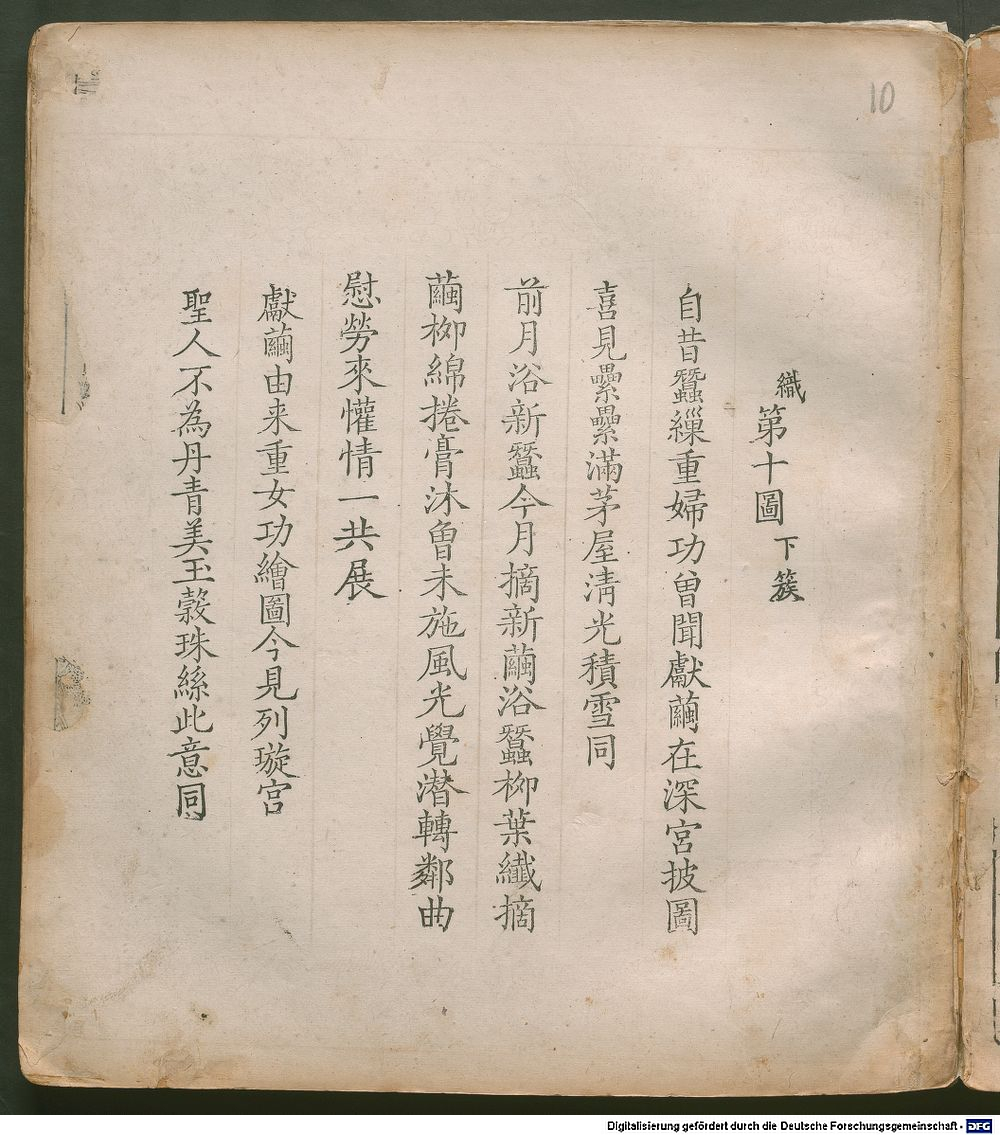 10
織第十圖 下簇
自昔蠶繅重婦功曾聞獻繭在深宮披圖
喜見纍纍滿茅屋清光積雪同
前月浴新蠶今月摘新繭浴蠶柳葉纖摘
繭柳綿捲膏沐曾未施風光覺潛轉鄰曲
慰勞來懽情一共展
獻繭由来重女功繪圖今見列璇宮
聖人不為丹青美玉縠珠絲此意同
Digitalisierung gefördert durch die Deutsche Forschungsgemeinschaft - DFG